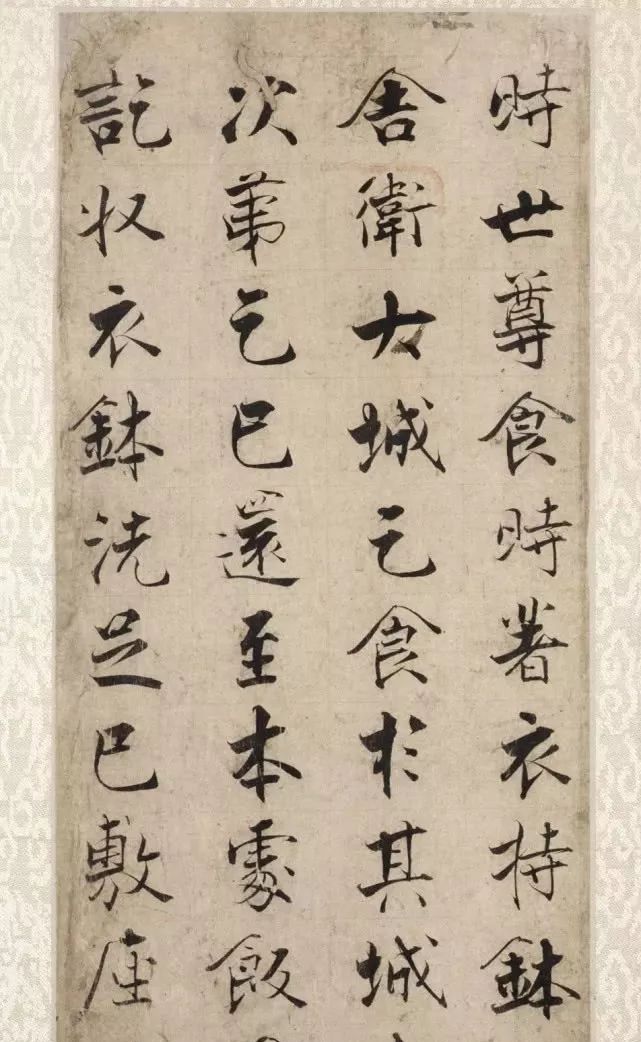 時世尊食時著衣持鉢
舍衛大城乞食於其城
次第乞已還至本處飯
訖収衣鉢洗足已敷座